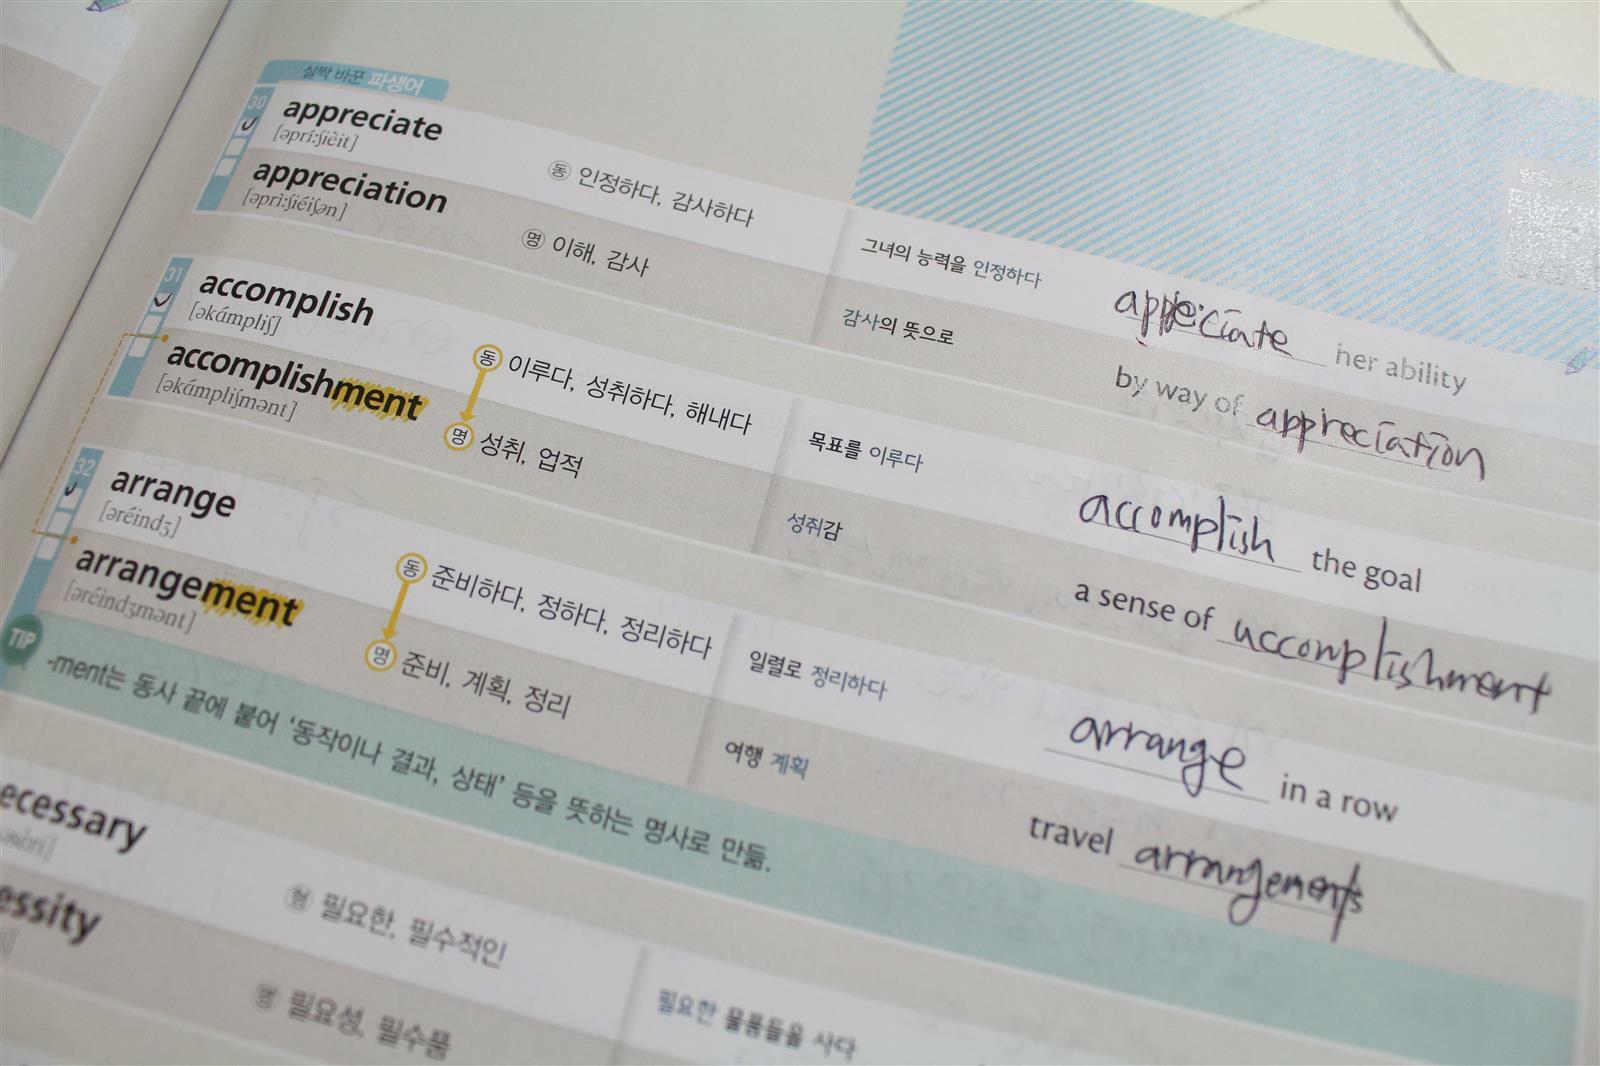 살짝 바꾼 파생어
30 appreciate
[əpríːʃièit]
동 인정하다, 감사하다
그녀의 능력을 인정하다
appreciate her ability
appreciation
[əprìːʃiéiʃən]
명 이해, 감사
감사의 뜻으로
by way of appreciation
31 accomplish
[əkάmpliʃ]
동 이루다, 성취하다, 해내다
목표를 이루다
accomplish the goal
accomplishment
[əkάmpliʃmənt]
명 성취, 업적
성취감
a sense of accomplishment
32 arrange
[əréindʒ]
동 준비하다, 정하다, 정리하다
일렬로 정리하다
arrange in a row
arrangement
[əréindʒmənt]
명 준비, 계획, 정리
여행 계획
travel arrangements
TIP -ment는 동사 끝에 붙어 ‘동작이나 결과, 상태’ 등을 뜻하는 명사로 만듦.
ecessary
형 필요한, 필수적인
필요한 물품들을 사다
essity
명 필요성, 필수품